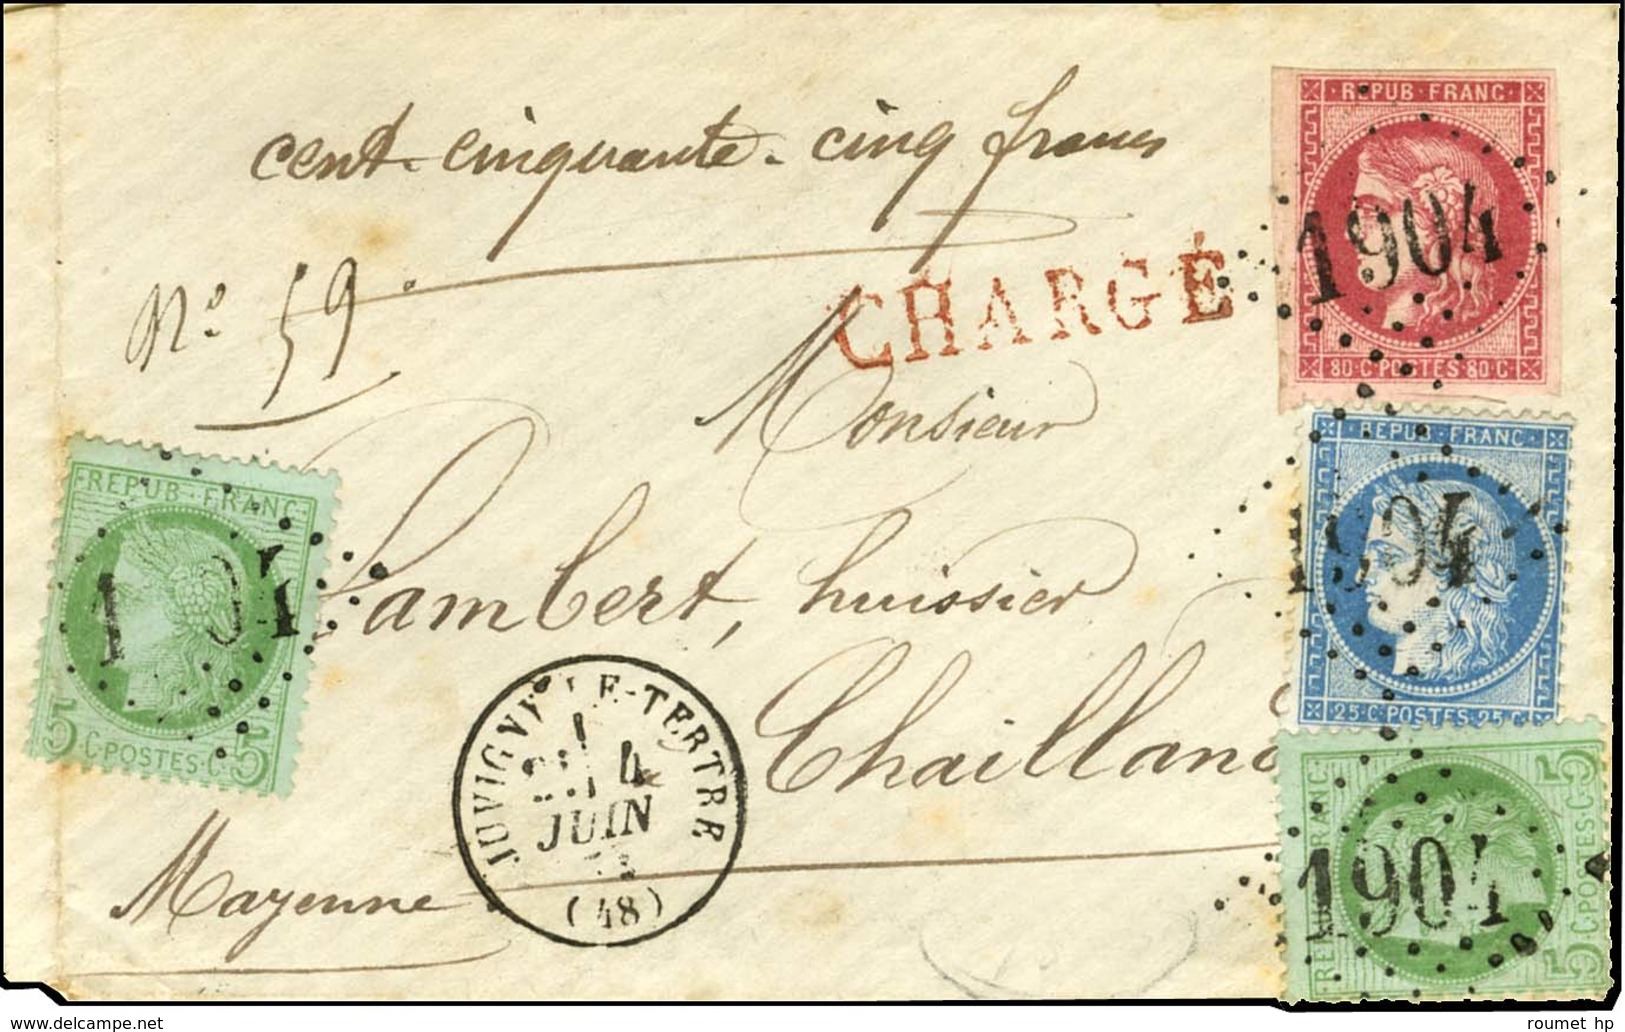 cent-cinquante-cinq francs
No 59.
CHARGÉ
Monsieur
Lambert, huissier
Chailland
Mayenne
REPUB·FRANC
80·C·POSTES·80·C
1904
REPUB·FRANC
25·C·POSTES·25·C
1904
REPUB·FRANC
5·C·POSTES·C·5
1904
REPUB·FRANC·
5·C·POSTES·C·5
1 04
LE-TERTRE
4
JUIN
(48)
roumet hp